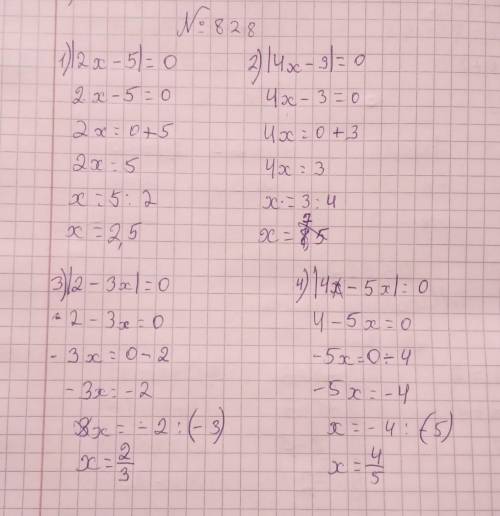 № 828
1) |2x - 5| = 0
2x - 5 = 0
2x = 0 + 5
2x = 5
x = 5 : 2
x = 2,5
2) |4x - 3| = 0
4x - 3 = 0
4x = 0 + 3
4x = 3
x = 3 : 4
x =
3) |2 - 3x| = 0
2 - 3x = 0
- 3x = 0 - 2
- 3x = - 2
x = - 2 : (- 3)
x = 2/3
4) |4 - 5x| = 0
4 - 5x = 0
- 5x = 0 - 4
- 5x = - 4
x = - 4 : (- 5)
x = 4/5